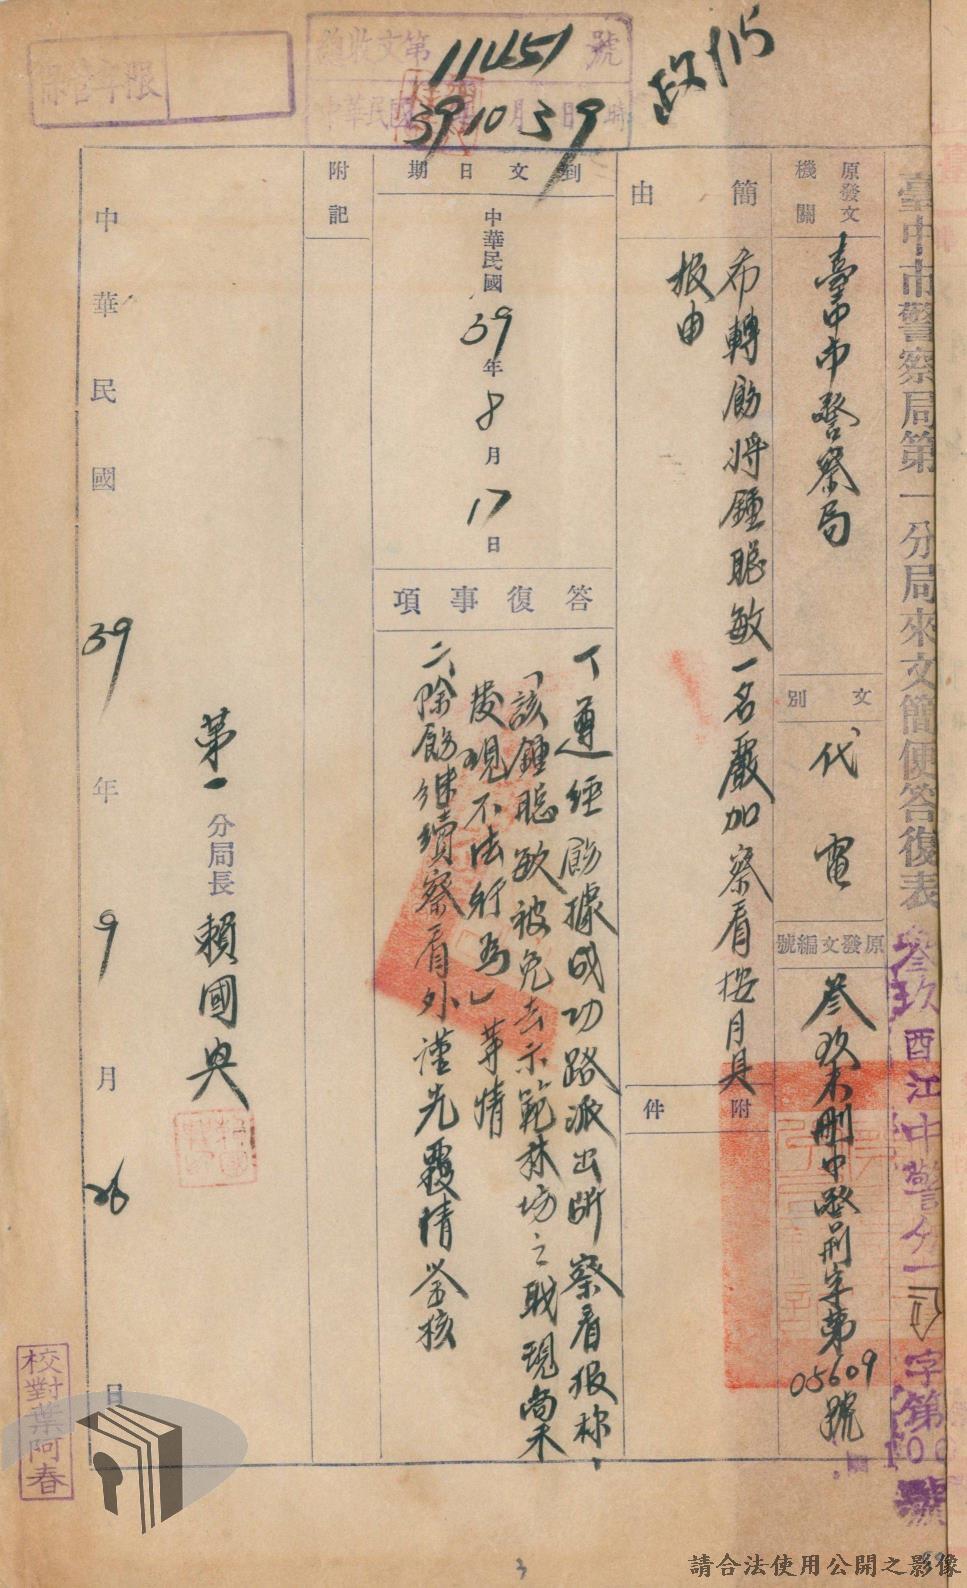 收文第11451號
中華民國39年10月3日9時
政115
保管年限
臺中市警察局第一分局來文簡便答復表
叁玖酉江中警分一司字第
號
原發文機關
臺中市警察局
文別
代電
原發文編號
叁玖未刪中警刑字第05609號
簡由
希轉飭將鍾聰敏一名嚴加察看按月具
报由
附件
到文日期
中華民國39年8月17日
答復事項
一、遵經飭據成功路派出所察看报称、
「該鍾聰敏被免去示範林場之職現尚未
發現不法行為」等情
二、除飭继續察看外謹先覆情答核
附記
第一分局長賴國興
中華民國39年9月26日
校對葉阿春
3
請合法使用公開之影像